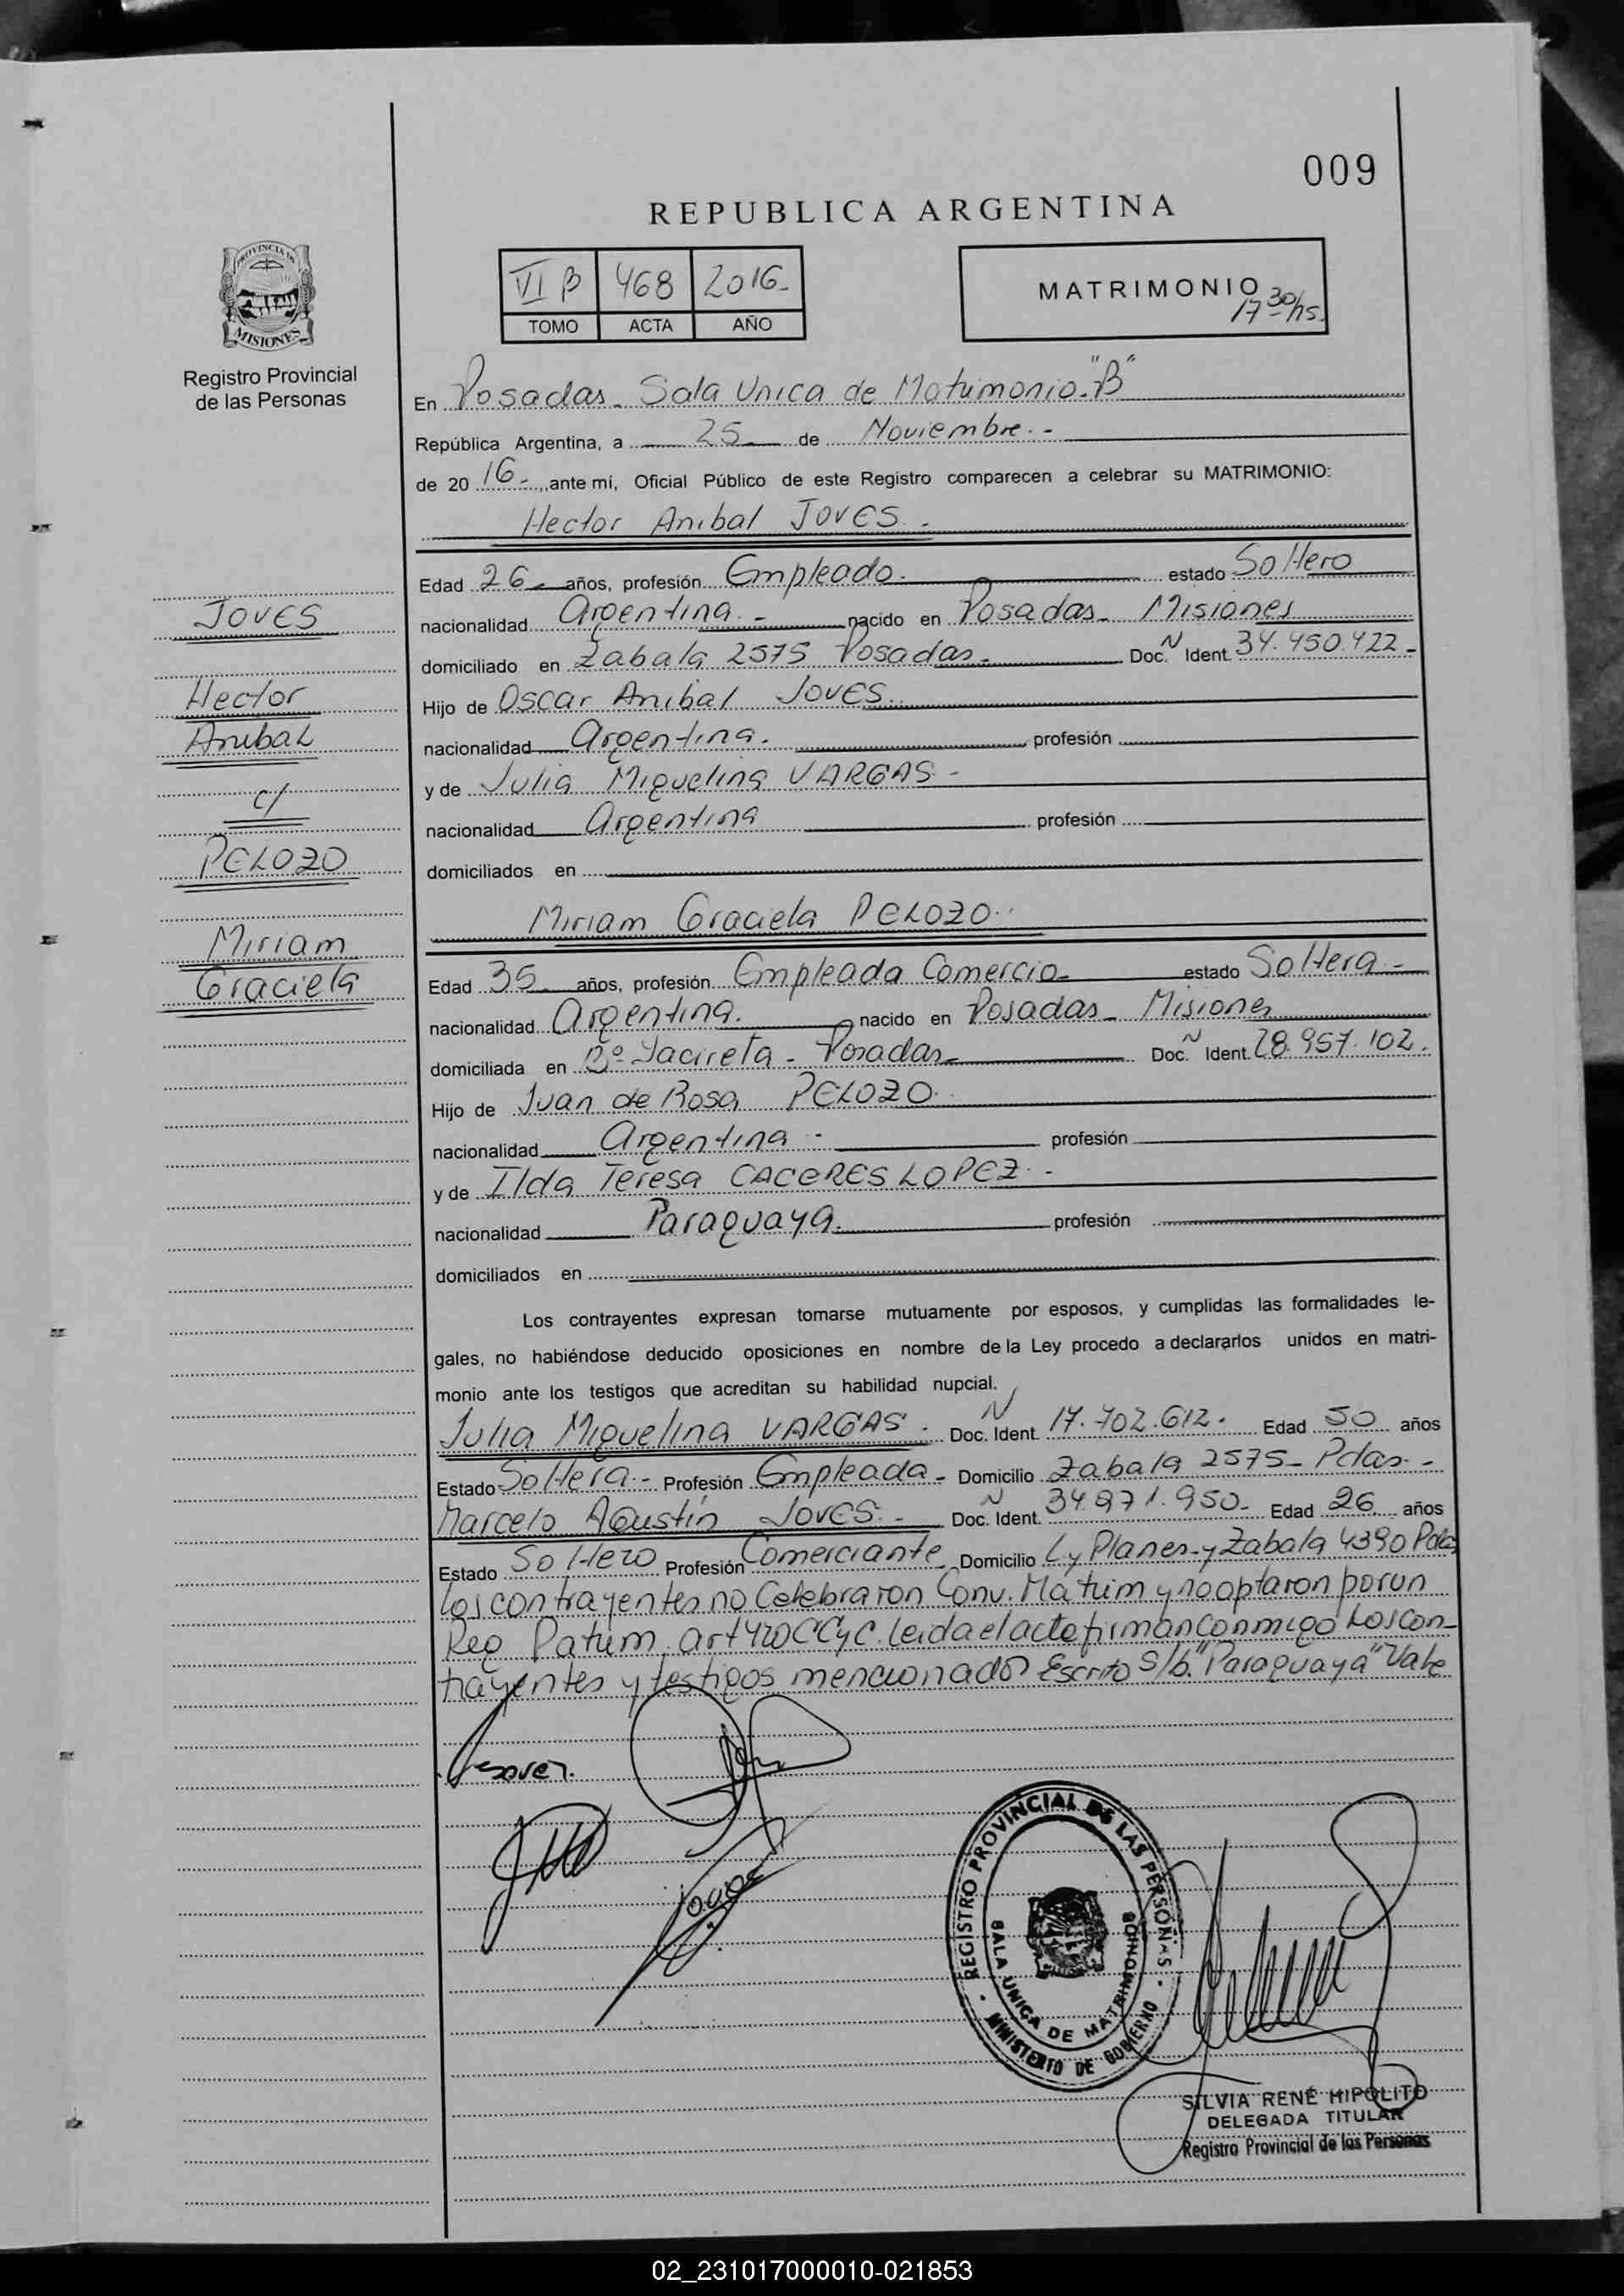 009
REPUBLICA ARGENTINA
PROVINCIA DE
MISIONES
Registro Provincial
de las Personas
VI B 468 2016-
TOMO ACTA AÑO
MATRIMONIO
17 30/hs.
En Posadas - Sala Unica de Matrimonio - "B"
República Argentina, a 25 de Noviembre.-
de 20 16.-, ante mí, Oficial Público de este Registro comparecen a celebrar su MATRIMONIO:
Hector Anibal JOVES.-
Edad 26 años, profesión Empleado. estado Soltero
nacionalidad Argentina.- nacido en Posadas - Misiones
domiciliado en Zabala 2575 Posadas.- Doc. N Ident. 34.450.422-
Hijo de Oscar Anibal JOVES.
nacionalidad Argentina. profesión
y de Julia Miguelina VARGAS.-
nacionalidad Argentina profesión
domiciliados en
JOVES
Hector
Anibal
c/
PELOZO
Miriam
Graciela
Miriam Graciela PELOZO.
Edad 35 años, profesión Empleada Comercio estado Soltera.-
nacionalidad Argentina. nacido en Posadas - Misiones
domiciliada en Bº Yacireta - Posadas Doc. N Ident. 28.957.102.
Hijo de Juan de Rosa PELOZO.
nacionalidad Argentina.- profesión
y de Ilda Teresa CACERES LOPEZ.-
nacionalidad Paraguaya. profesión
domiciliados en
Los contrayentes expresan tomarse mutuamente por esposos, y cumplidas las formalidades le-
gales, no habiéndose deducido oposiciones en nombre de la Ley procedo a declararlos unidos en matri-
monio ante los testigos que acreditan su habilidad nupcial.
Julia Miguelina VARGAS. Doc. N Ident. 17.702.612. Edad 50 años
Estado Soltera.- Profesión Empleada - Domicilio Zabala 2575 - Pdas.-
Marcelo Agustín JOVES.- Doc. N Ident. 34.971.950- Edad 26 años
Estado Soltero Profesión Comerciante Domicilio L y Planes y Zabala 4390 Pdas
Los contrayentes no Celebraron Conv. Matrim y no optaron por un
Reg Patrim. art 420 CCyC. leida el acta firman conmigo Los con-
trayentes y testigos mencionados Escrito S/b. "Paraguaya" Vale
REGISTRO PROVINCIAL DE LAS PERSONAS
SALA UNICA DE MATRIMONIOS
MINISTERIO DE GOBIERNO
SILVIA RENÉ HIPÓLITO
DELEGADA TITULAR
Registro Provincial de las Personas
02_231017000010-021853